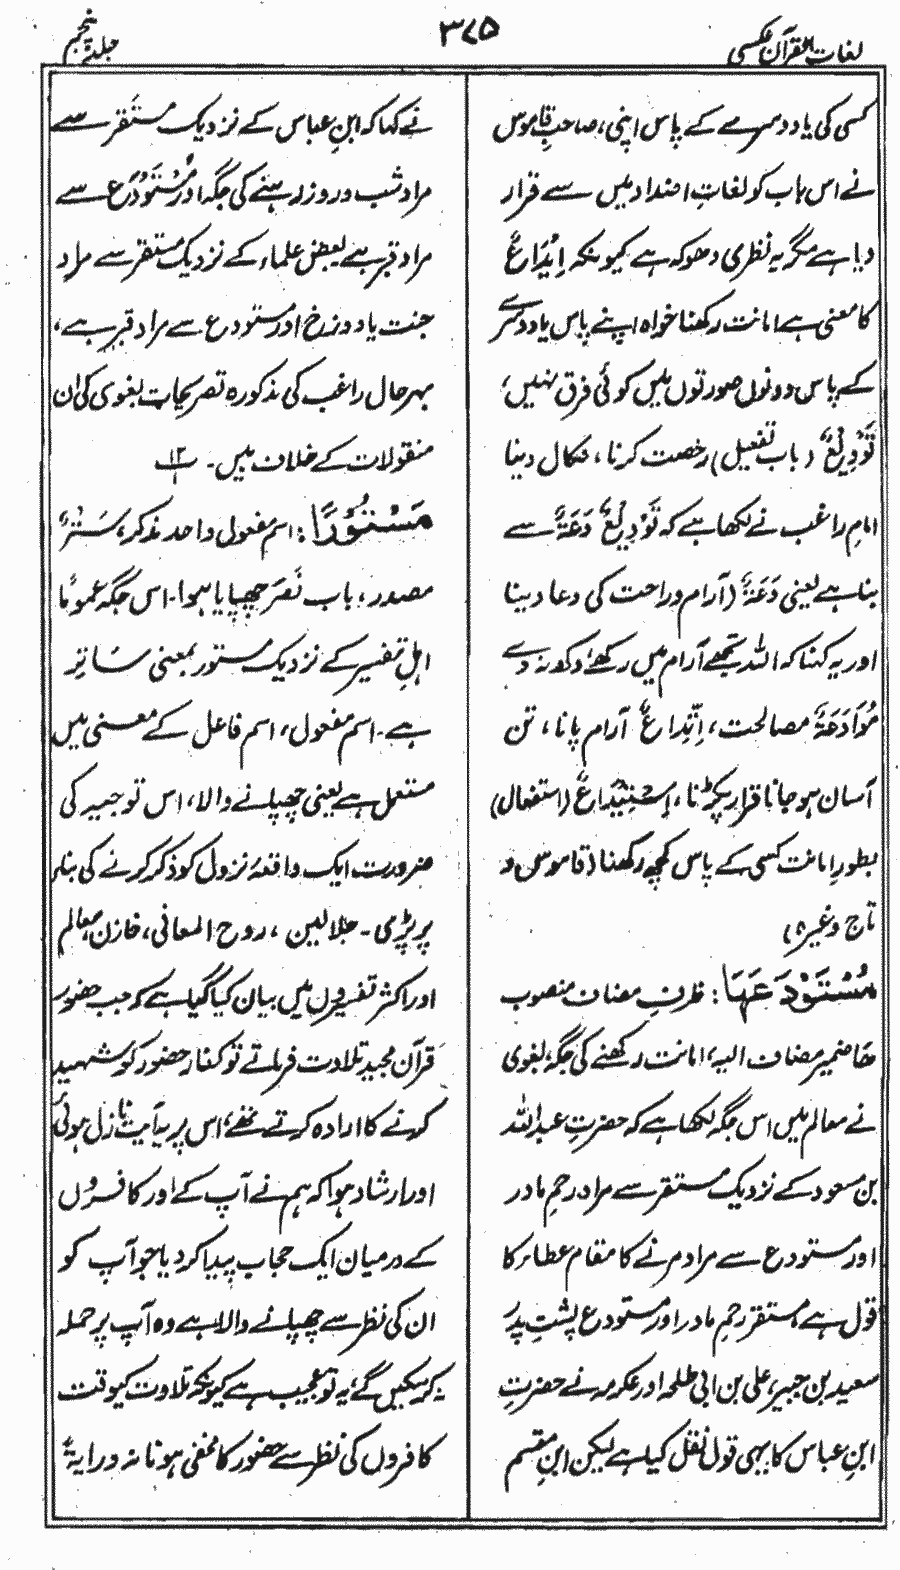 لغات القرآن عکسی
۳۷۵
جلد پنجم
کسی کی یا دوسرے کے پاس اپنی، صاحبِ قاموس
نے اس باب کو لغاتِ اضداد میں سے قرار
دیا ہے مگر یہ نظری دھوکہ ہے کیونکہ اِیْدَاعٌ
کا معنی ہے امانت رکھنا خواہ اپنے پاس یا دوسرے
کے پاس دونوں صورتوں میں کوئی فرق نہیں،
تَوْدِیْعٌ (باب تفعیل) رخصت کرنا، نکال دینا
امامِ راغب نے لکھا ہے کہ تَوْدِیْعٌ دَعَةٌ سے
بنا ہے یعنی دَعَةٌ (آرام وراحت کی دعا دینا
اور یہ کہنا کہ اللہ تجھے آرام میں رکھے، دکھ نہ دے
مُوَادَعَةٌ مصالحت، اِتِّدَاعٌ آرام پانا، تن
آسان ہو جانا قرار پکڑنا، اِسْتِیْدَاعٌ (استفعال)
بطورِ امانت کسی کے پاس کچھ رکھنا (قاموس و
تاج وغیرہ)
مُسْتَوْدَعَهَا: ظرفِ مضاف منصوب
ھَا ضمیر مضاف الیہ، امانت رکھنے کی جگہ، بغوی
نے معالم میں اس جگہ لکھا ہے کہ حضرتِ عبداللہ
بن مسعود کے نزدیک مستقر سے مراد رحمِ مادر
اور مستودع سے مراد مرنے کا مقام عطاء کا
قول ہے مستقر رحمِ مادر اور مستودع پشتِ پدر
سعید بن جبیر، علی بن ابی طلحہ اور عکرمہ نے حضرتِ
ابنِ عباس کا یہی قول نقل کیا ہے لیکن ابنِ مقسم
نے کہا کہ ابنِ عباس کے نزدیک مستقر سے
مراد شب و روز رہنے کی جگہ اور مُسْتَوْدَع سے
مراد قبر ہے۔ بعض علماء کے نزدیک مستقر سے مراد
جنت یا دوزخ اور مستودع سے مراد قبر ہے،
بہرحال راغب کی مذکورہ تصریحات بغوی کی ان
منقولات کے خلاف ہیں۔ ۱۲
مَسْتُوْرًا: اسم مفعول واحد مذکر، سَتْرٌ
مصدر، باب نَصَرَ چھپایا ہوا۔ اس جگہ عموماً
اہلِ تفسیر کے نزدیک مستور بمعنی ساتِر
ہے۔ اسم مفعول، اسم فاعل کے معنی میں
مستعمل ہے یعنی چھپانے والا، اس توجیہ کی
ضرورت ایک واقعۂ نزول کو ذکر کرنے کی بنا
پر پڑی۔ جلالین، روح المعانی، خازن، معالم
اور اکثر تفسیروں میں بیان کیا گیا ہے کہ جب حضور
قرآن مجید تلاوت فرماتے تو کفار حضور کو شہید
کرنے کا ارادہ کرتے تھے، اس پر یہ آیت نازل ہوئی
اور ارشاد ہوا کہ ہم نے آپ کے اور کافروں
کے درمیان ایک حجاب پیدا کر دیا جو آپ کو
ان کی نظر سے چھپانے والا ہے وہ آپ پر حملہ
نہ کر سکیں گے، یہ توجیہ ہے کیونکہ تلاوت کے وقت
کافروں کی نظر سے حضور کا مخفی ہونا نہ درایۃً